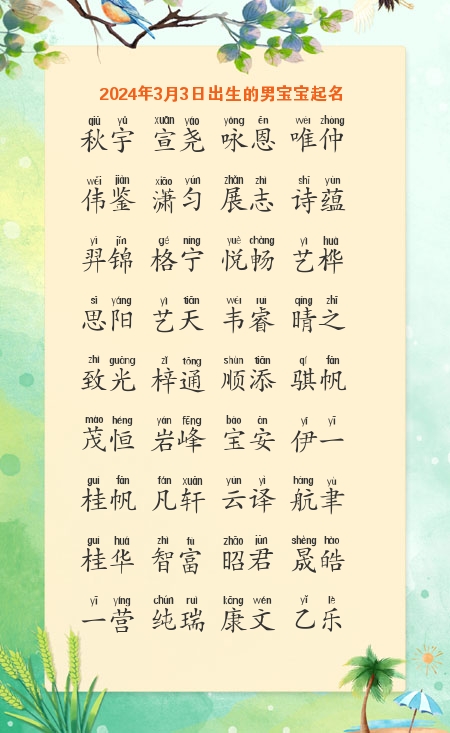 2024年3月3日出生的男宝宝起名
qiū yǔ xuān yáo yǒng ēn wéi zhòng
秋宇 宣尧 咏恩 唯仲
wěi jiàn xiāo yún zhǎn zhì shī yùn
伟鉴 潇匀 展志 诗蕴
yì jǐn gé níng yuè chàng yì huà
羿锦 格宁 悦畅 艺桦
sī yáng yì tiān wéi ruì qíng zhī
思阳 艺天 韦睿 晴之
zhì guāng zǐ tōng shùn tiān qí fān
致光 梓通 顺添 骐帆
mào héng yán fēng bǎo ān yī yī
茂恒 岩峰 宝安 伊一
guì fān fán xuān yún yì háng yù
桂帆 凡轩 云译 航聿
guì huá zhì fù zhāo jūn shèng hào
桂华 智富 昭君 晟皓
yī yíng chún ruì kāng wén yǐ lè
一营 纯瑞 康文 乙乐